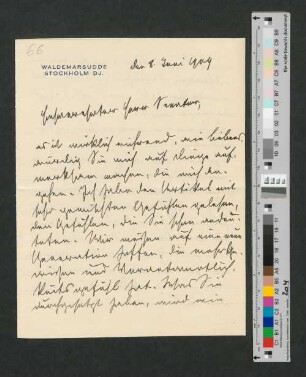 66
WALDEMARSUDDE
STOCKHOLM DJ.
den 8. Juni 1909
Hochverehrter Herr Senator,
es ist wirklich rührend, wie liebens-
würdig Sie mich auf Dinge auf-
merksam machen, die mich an-
gehen. Ich habe den Artikel mit
sehr gemischten Gefühlen gelesen,
den Gefühlen, die Sie schon andeu-
teten. Wir müssen auf eine neue
Generation hoffen, die mehr Ge-
wissen und Verantwortlich-
keitsgefühl hat. Dass Sie
durchgesetzt haben, wird mein